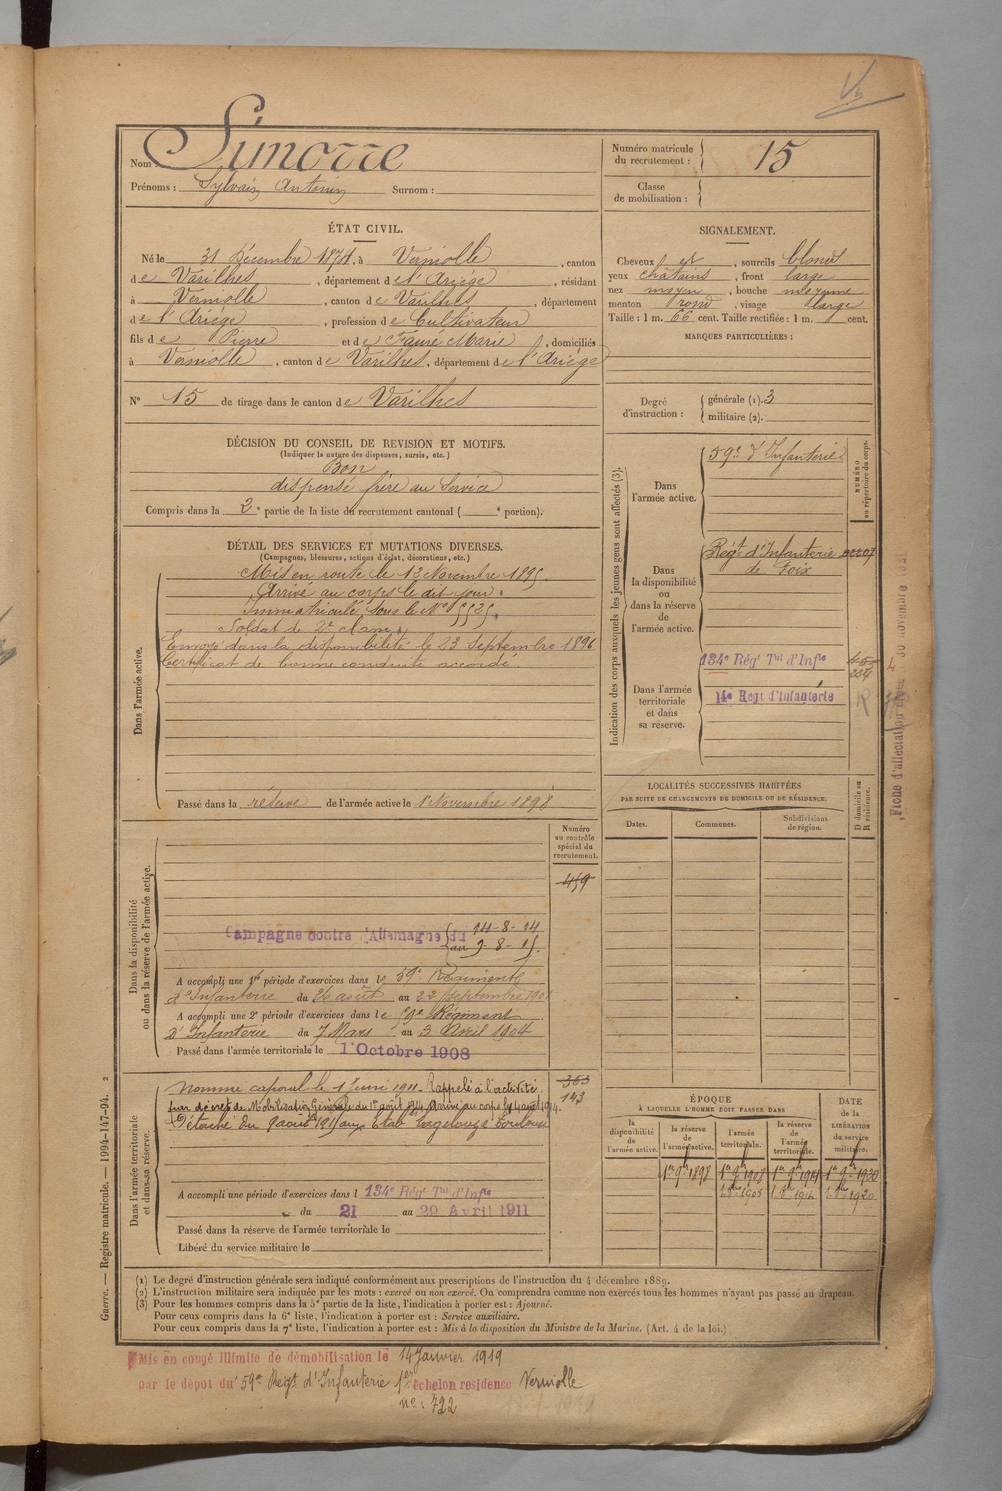 Nom : Simorre
Prénoms : Sylvain Antonin Surnom :
Numéro matricule du recrutement : 15
Classe de mobilisation :
ÉTAT CIVIL.
Né le 31 Décembre 1874, à Verniolle, canton
de Varilhes, département de l'Ariège, résidant
à Verniolle, canton de Varilhes, département
de l'Ariège, profession de Cultivateur
fils de Pierre et de Faure Marie, domiciliés
à Verniolle, canton de Varilhes, département de l'Ariège
N° 15 de tirage dans le canton de Varilhes
SIGNALEMENT.
Cheveux et, sourcils blonds
yeux châtains, front large
nez moyen, bouche moyenne
menton rond, visage large
Taille : 1 m. 66 cent. Taille rectifiée : 1 m. cent.
MARQUES PARTICULIÈRES :
Degré d'instruction : générale (1). 3
militaire (2).
DÉCISION DU CONSEIL DE REVISION ET MOTIFS.
(Indiquer la nature des dispenses, sursis, etc.)
Bon
dispensé frère au Service
Compris dans la 2e partie de la liste du recrutement cantonal ( e portion).
DÉTAIL DES SERVICES ET MUTATIONS DIVERSES.
(Campagnes, blessures, actions d'éclat, décorations, etc.)
Dans l'armée active.
Mis en route le 13 Novembre 1895.
Arrivé au corps le dit jour.
Immatriculé sous le N°
Soldat de 2e classe.
Envoyé dans la disponibilité le 23 Septembre 1896
Certificat de bonne conduite accordé.
Passé dans la réserve de l'armée active le 1r Novembre 1898
Indication des corps auxquels les jeunes gens sont affectés (3).
NUMÉRO au répertoire du corps.
Dans l'armée active.
59e d'Infanterie
Dans la disponibilité ou dans la réserve de l'armée active.
Régt d'Infanterie de Foix
Dans l'armée territoriale et dans sa réserve.
134e Régt Tal d'Infie
14e Regt d'Infanterie
Fiche d'affectation
LOCALITÉS SUCCESSIVES HABITÉES
PAR SUITE DE CHANGEMENTS DE DOMICILE OU DE RÉSIDENCE.
Dates. Communes. Subdivisions de région. D domicile ou R résidence.
Dans la disponibilité ou dans la réserve de l'armée active.
Numéro au contrôle spécial du recrutement.
459
Campagne contre l'Allemagne du 14-8-14
au 9-8-15.
A accompli une 1re période d'exercices dans le 59e Régiment
d'Infanterie du 26 août au 22 septembre
A accompli une 2e période d'exercices dans le 59e Régiment
d'Infanterie du 7 Mars au 3 Avril 1904
Passé dans l'armée territoriale le 1 Octobre 1908
Dans l'armée territoriale et dans sa réserve.
353
143
Nommé caporal le 1911. Rappelé à l'activité
par décret de Mobilisation Générale du 1er août 1914. Arrivé au corps le 14 août 1914.
Détaché du 9 août 1915 aux Toulouse
A accompli une période d'exercices dans l 134e Régt Tal d'Infie
du 21 au 29 Avril 1911
Passé dans la réserve de l'armée territoriale le
Libéré du service militaire le
ÉPOQUE
À LAQUELLE L'HOMME DOIT PASSER DANS
DATE de la LIBÉRATION du service militaire.
la disponibilité de l'armée active. la réserve de l'armée active. l'armée territoriale. la réserve de l'armée territoriale.
1er 9bre 1898 1er 9bre 1908 1er 9bre 1914 1er 9bre 1920
(1) Le degré d'instruction générale sera indiqué conformément aux prescriptions de l'instruction du 4 décembre 1889.
(2) L'instruction militaire sera indiquée par les mots : exercé ou non exercé. On comprendra comme non exercés tous les hommes n'ayant pas passé au drapeau.
(3) Pour les hommes compris dans la 5e partie de la liste, l'indication à porter est : Ajourné.
Pour ceux compris dans la 6e liste, l'indication à porter est : Service auxiliaire.
Pour ceux compris dans la 7e liste, l'indication à porter est : Mis à la disposition du Ministre de la Marine. (Art. 4 de la loi.)
Guerre. — Registre matricule. — 1994-147-94. 2
Mis en congé illimité de démobilisation le 14 Janvier 1919
par le dépôt du 59e Régt d'Infanterie 1er échelon résidence Verniolle
n°: 722